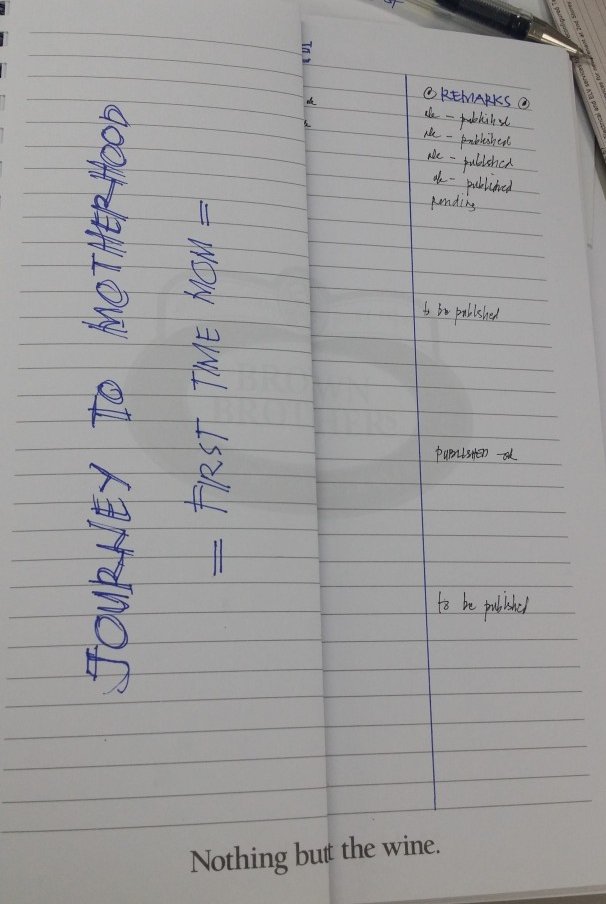 JOURNEY TO MOTHERHOOD
= FIRST TIME MOM =
REMARKS
ok - published
ok - published
ok - published
ok - published
pending
to be published
PUBLISHED - ok
to be published
BROWN
BROTHERS
Nothing but the wine.